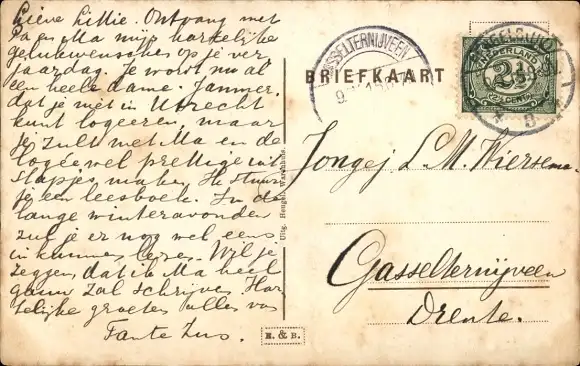 Lieve Lillie. Ontvang met
Pa en Ma mijn hartelijke
gelukwenschen op je ver
jaardag. Je wordt nu al
een heele dame. Jammer,
dat je niet in Utrecht
kunt logeeren, maar
je zult met Ma en de
logée wel prettige uit
stapjes maken. Ik stuur
je een leesboek. In de
lange winteravonden
zul je er nog wel eens
in kunnen lezen. Wil je
zeggen dat ik Ma heel
gauw zal schrijven. Har
telijke groeten alles van
Tante Zus.
Uitg. Hengel. Warenhuis.
E. & B.
GASSELTERNIJVEEN
BRIEFKAART
NEDERLAND
2½
2½ CENT
Jongej. L. M. Wiersema
Gasselternijveen
Drente.